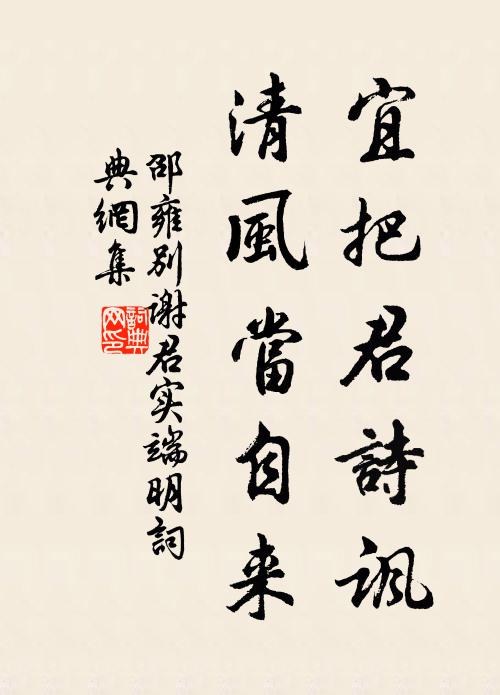 宜把君詩諷
清風當自来
邵雍别谢君实端明詞
典網集
詞典
网印